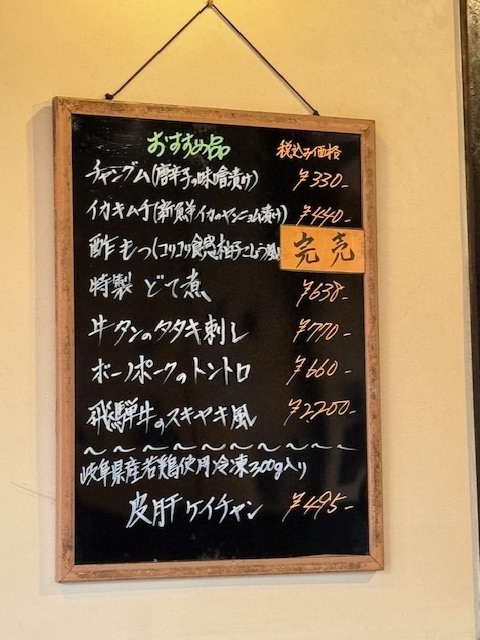 おすすめ品 税込み価格
チャンヂム(唐辛子の味噌漬け) ¥330-
イカキムチ(新鮮イカのヤンニョム漬け) ¥440-
酢もつ(コリコリ食感柚子こしょう風味 完売
特製 どて煮 ¥638-
牛タンのタタキ刺し ¥770-
ボーノポークのトントロ ¥660-
飛騨牛のスキヤキ風 ¥2,200-
岐阜県産若鶏使用冷凍300g入り
皮肝ケイチャン ¥495-